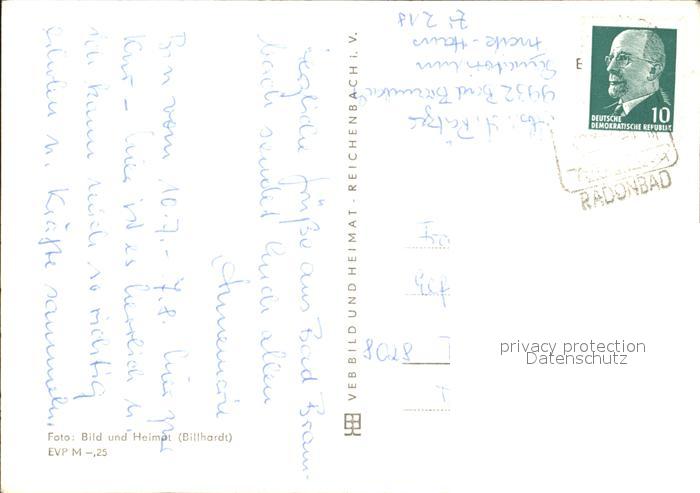 Herzliche Grüße aus Bad Bram-
bach sendet Euch allen
Annemarie
Bin vom 10.7. - 7.8. hier zur
Kur - hier ist es herrlich u.
ich kann mich so richtig
erholen u. Kräfte sammeln.
Foto: Bild und Heimat (Billhardt)
EVP M –,25
VEB BILD UND HEIMAT · REICHENBACH i. V.
Abs.:
9932 Bad Brambach
Sanatorium
Zi 218
DEUTSCHE
DEMOKRATISCHE REPUBLIK
10
RADONBAD
E
8208
privacy protection
Datenschutz